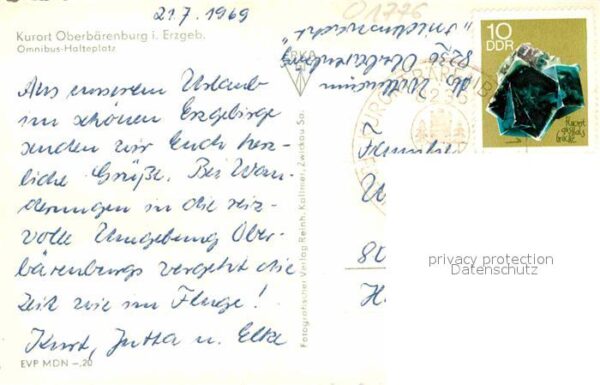 21.7.1969
Kurort Oberbärenburg i. Erzgeb.
Omnibus-Halteplatz
Aus unserem Urlaub
im schönen Erzgebirge
senden wir Euch herz-
liche Grüße. Bei Wan-
derungen in die reiz-
volle Umgebung Ober-
bärenburgs vergeht die
Zeit wie im Fluge!
Kurt, Jutta u. Elke
EVP MDN -.20
Fotografischer Verlag Reinh. Kallmer, Zwickau Sa.
01776
8236 Oberbärenburg
10
DDR
Familie
80
H.
privacy protection
Datenschutz